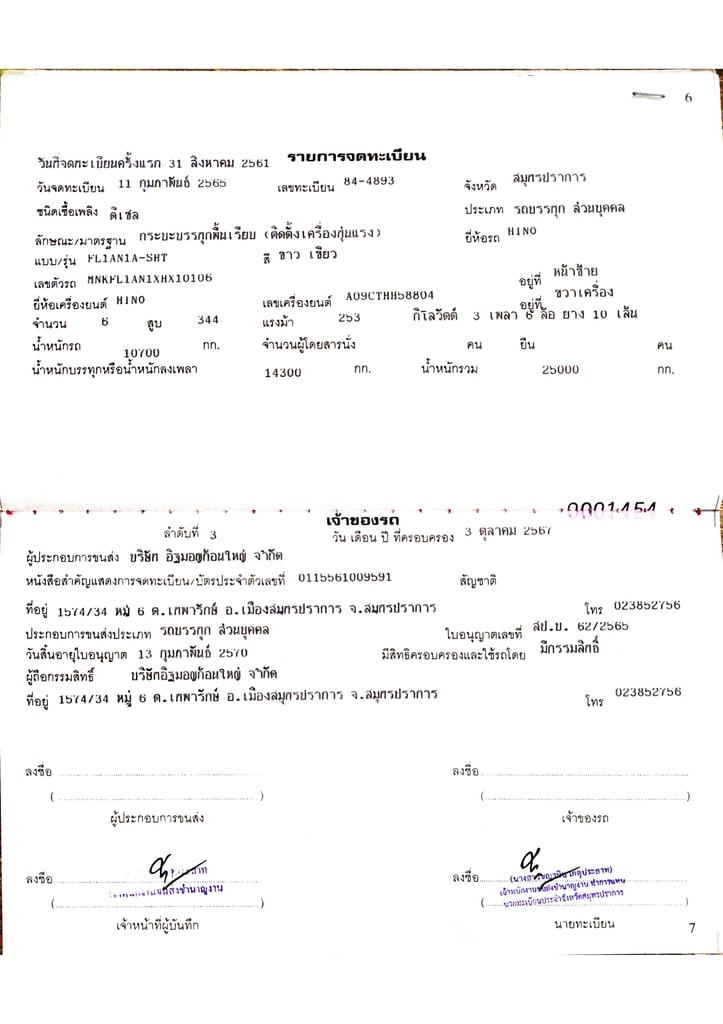 6
วันที่จดทะเบียนครั้งแรก 31 สิงหาคม 2561 รายการจดทะเบียน
วันจดทะเบียน 11 กุมภาพันธ์ 2565 เลขทะเบียน 84-4893 จังหวัด สมุทรปราการ
ชนิดเชื้อเพลิง ดีเซล ประเภท รถบรรทุก ส่วนบุคคล
ลักษณะ/มาตรฐาน กระบะบรรทุกพื้นเรียบ (ติดตั้งเครื่องทุ่นแรง) ยี่ห้อรถ HINO
แบบ/รุ่น FL1AN1A-SHT สี ขาว เขียว
เลขตัวรถ MNKFL1AN1XHX10106 อยู่ที่ หน้าซ้าย
ยี่ห้อเครื่องยนต์ HINO เลขเครื่องยนต์ A09CTHH58804 อยู่ที่ ขวาเครื่อง
จำนวน 6 สูบ 344 แรงม้า 253 กิโลวัตต์ 3 เพลา 6 ล้อ ยาง 10 เส้น
น้ำหนักรถ 10700 กก. จำนวนผู้โดยสารนั่ง คน ยืน คน
น้ำหนักบรรทุกหรือน้ำหนักลงเพลา 14300 กก. น้ำหนักรวม 25000 กก.
0001454
เจ้าของรถ
ลำดับที่ 3 วัน เดือน ปี ที่ครอบครอง 3 ตุลาคม 2567
ผู้ประกอบการขนส่ง บริษัท อิฐมอญก้อนใหญ่ จำกัด
หนังสือสำคัญแสดงการจดทะเบียน/บัตรประจำตัวเลขที่ 0115561009591 สัญชาติ
ที่อยู่ 1574/34 หมู่ 6 ต.เทพารักษ์ อ.เมืองสมุทรปราการ จ.สมุทรปราการ โทร 023852756
ประกอบการขนส่งประเภท รถบรรทุก ส่วนบุคคล ใบอนุญาตเลขที่ สป.บ. 62/2565
วันสิ้นอายุใบอนุญาต 13 กุมภาพันธ์ 2570 มีสิทธิครอบครองและใช้รถโดย มีกรรมสิทธิ์
ผู้ถือกรรมสิทธิ์ บริษัทอิฐมอญก้อนใหญ่ จำกัด
ที่อยู่ 1574/34 หมู่ 6 ต.เทพารักษ์ อ.เมืองสมุทรปราการ จ.สมุทรปราการ โทร 023852756
ลงชื่อ ลงชื่อ
( ) ( )
ผู้ประกอบการขนส่ง เจ้าของรถ
ลงชื่อ ลงชื่อ
เจ้าพนักงานขนส่งชำนาญงาน ทำการแทน
( ) ( นายทะเบียนประจำจังหวัดสมุทรปราการ
เจ้าหน้าที่ผู้บันทึก นายทะเบียน
7